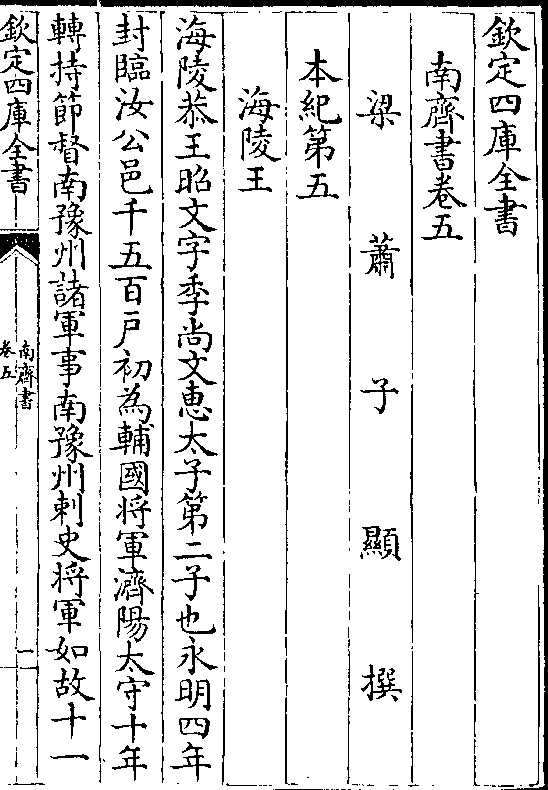 欽定四庫全書
南齊書卷五
梁蕭子顯撰
本紀第五
海陵王
海陵恭王昭文字季尚文恵太子第二子也永明四年
封臨汝公邑千五百戶初為輔國將軍濟陽太守十年
轉持節督南豫州諸軍事南豫州刺史將軍如故十一
欽定四庫全書
南齊書
卷五
一